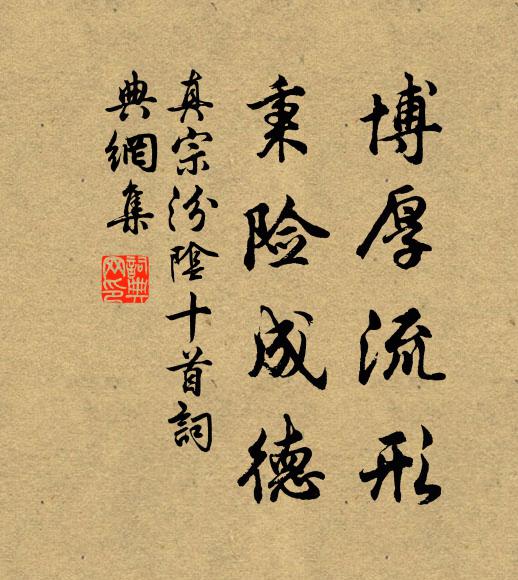 博厚流形
秉险成德
真宗汾陰十首詞
典網集
詞典網印